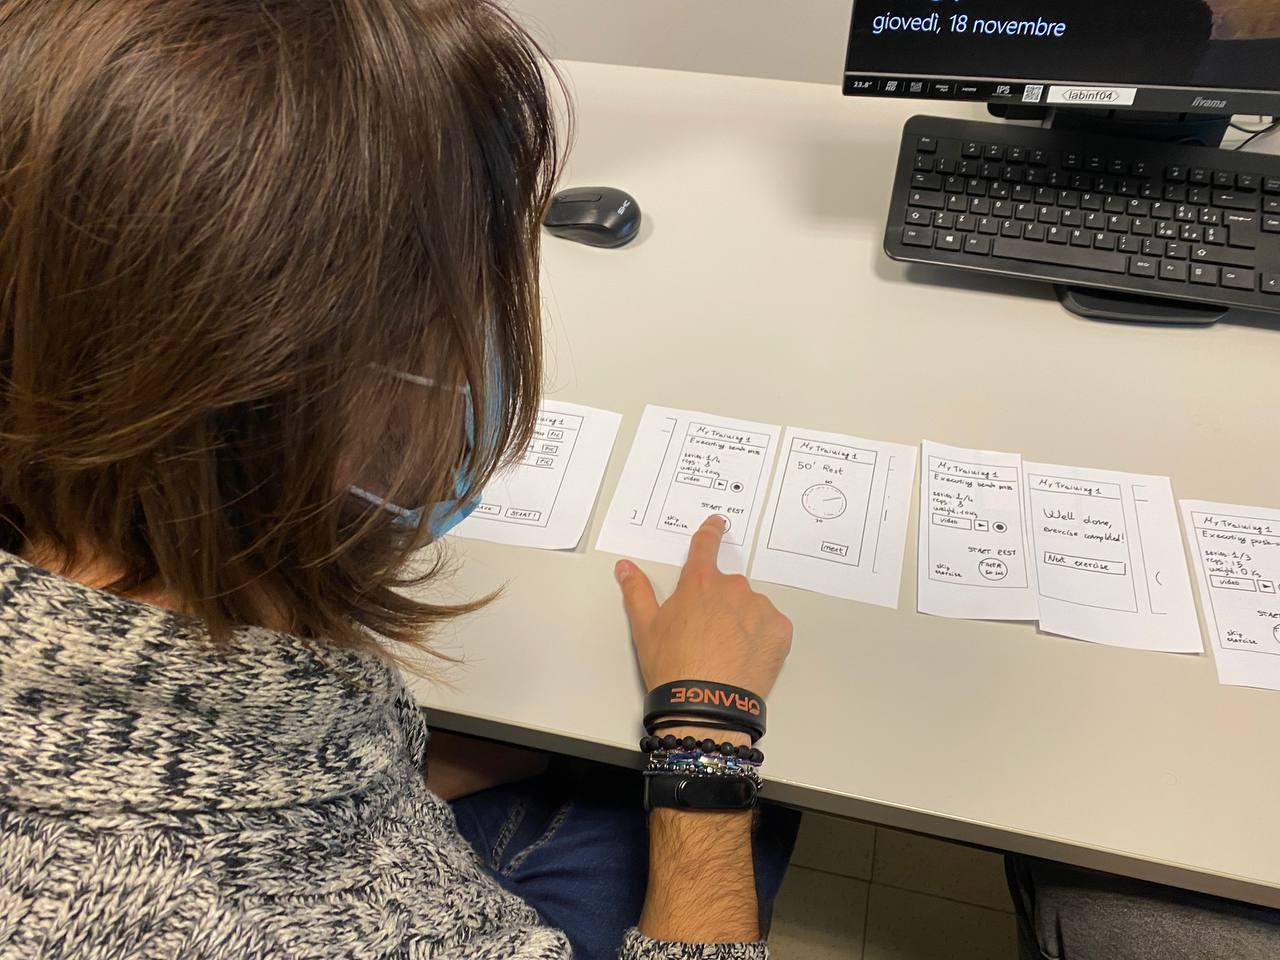 giovedì, 18 novembre
23.8"
IPS
labinf04
iiyama
Training 1
PIC
PIC
PIC
START!
My Training 1
Executing bench press
series: 1/4
reps: 8
weight: 10 kg
video
START REST
skip
exercise
My Training 1
50' Rest
60
30
My Training 1
Executing bench press
series: 1/4
reps: 8
weight: 10 kg
video
START REST
TIMER
50 sec
skip
exercise
My Training 1
Well done,
exercise completed!
Next exercise
My Training 1
Executing
series: 1/3
reps: 15
weight: 0 kg
video
START
skip
exercise
ORANGE